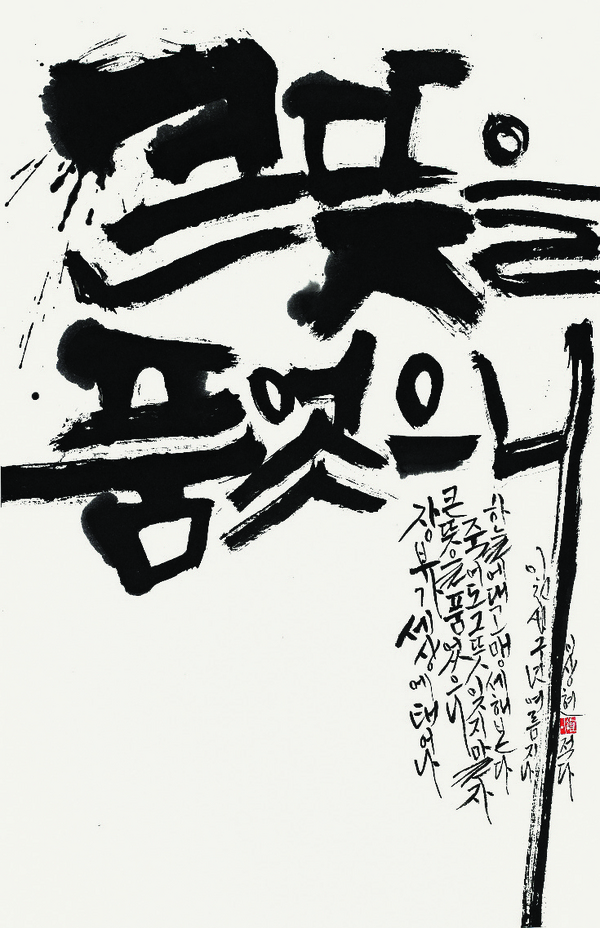 큰 뜻을
품었으니
장부가 세상에 태어나
큰 뜻을 품었으니
죽어도 그 뜻 잊지 말자
하늘에 대고 맹세해 본다
이천 여름 지나
이상현 적다